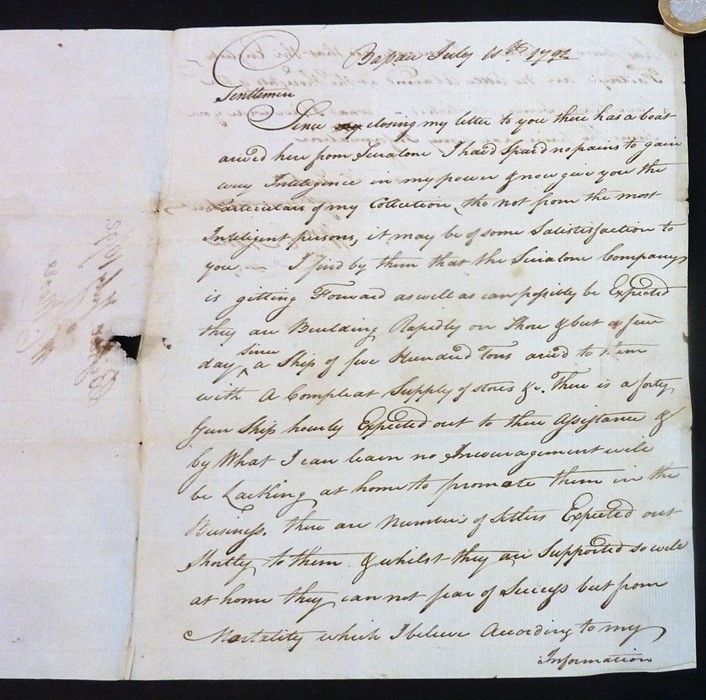 Bassau July 11th 1792
Gentlemen
Since my closing my letter to you there has a boat
arived here from Searalone I hard spard no pains to gain
every Inteligence in my power & now give you the
Particulars of my Collection, tho not from the most
Inteligent persons, it may be of some Satisfaction to
you I find by them that the Searalone Company
is gitting Forward as well as can possibly be Expected
they are Building Rapidly on Shore & but a few
day since a Ship of five Hundred Tons arived to them
with A Compleat Supply of stores &c. There is a forty
Gun Ship hourly Expected out to there Assistance &
by What I can learn no Incouragement will
be Lacking at home to promate them in the
Business. there are Number of Setlers Expected out
Shortly to them & whilst they are Supported so well
at home they can not fear of Success but from
Mortality which I believe According to my
Information